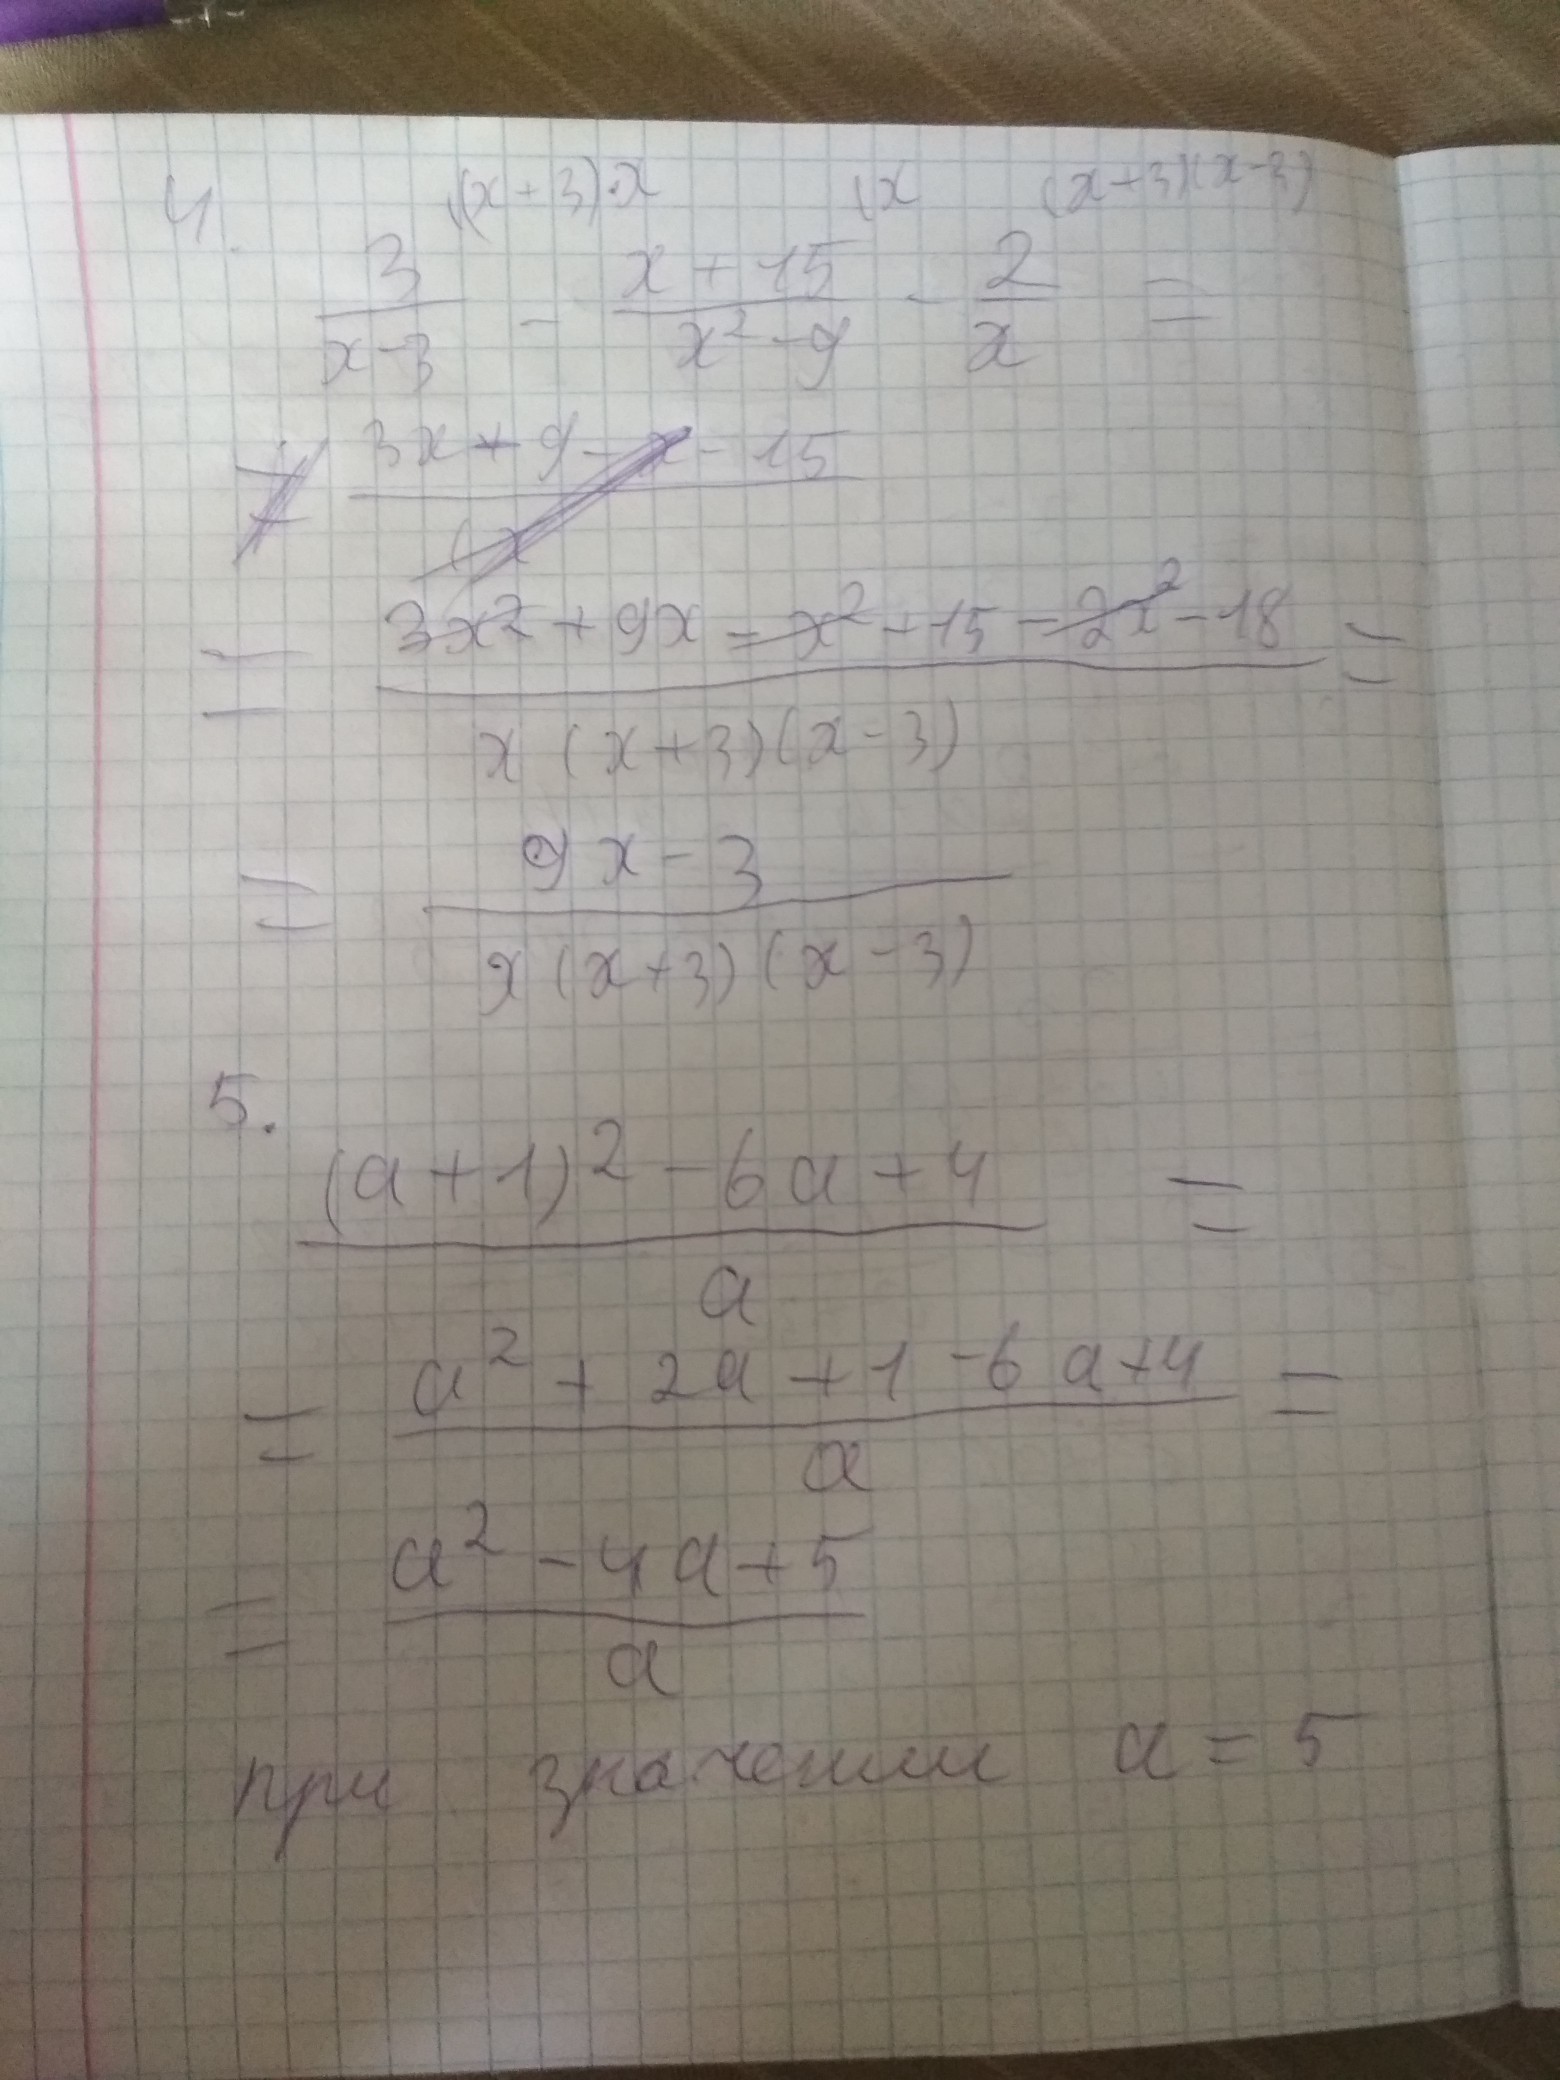 4. (x+3)·x (x (x+3)(x-3)
3/(x-3) - (x+15)/(x²-9) - 2/x =
= 3x+9-x-15
(x
= (3x²+9x-x²+15-2x²-18)/(x(x+3)(x-3)) =
= (9x-3)/(x(x+3)(x-3))
5.
((a+1)²-6a+4)/a =
= (a²+2a+1-6a+4)/a =
= (a²-4a+5)/a
при значении a=5